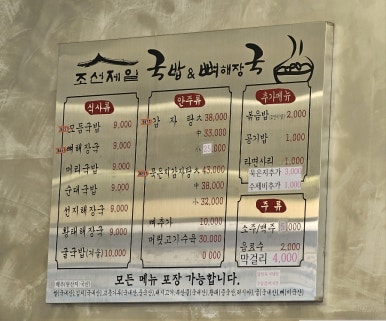 조선제일 국밥 & 뼈해장국
식사류
모듬국밥 9,000
뼈해장국 9,000
머리국밥 9,000
순대국밥 9,000
선지해장국 9,000
황태해장국 9,000
굴국밥(겨울) 10,000
안주류
감자탕 大 38,000
中 33,000
小
묵은지감자탕 大 43,000
中 38,000
小 32,000
뼈추가 10,000
머릿고기수육 30,000
추가메뉴
볶음밥 2,000
공기밥 1,000
라면사리 1,000
묵은지추가 3,000
수제비추가 1,000
주류
소주/맥주 5,000
음료수 2,000
막걸리 4,000
모든 메뉴 포장 가능합니다.